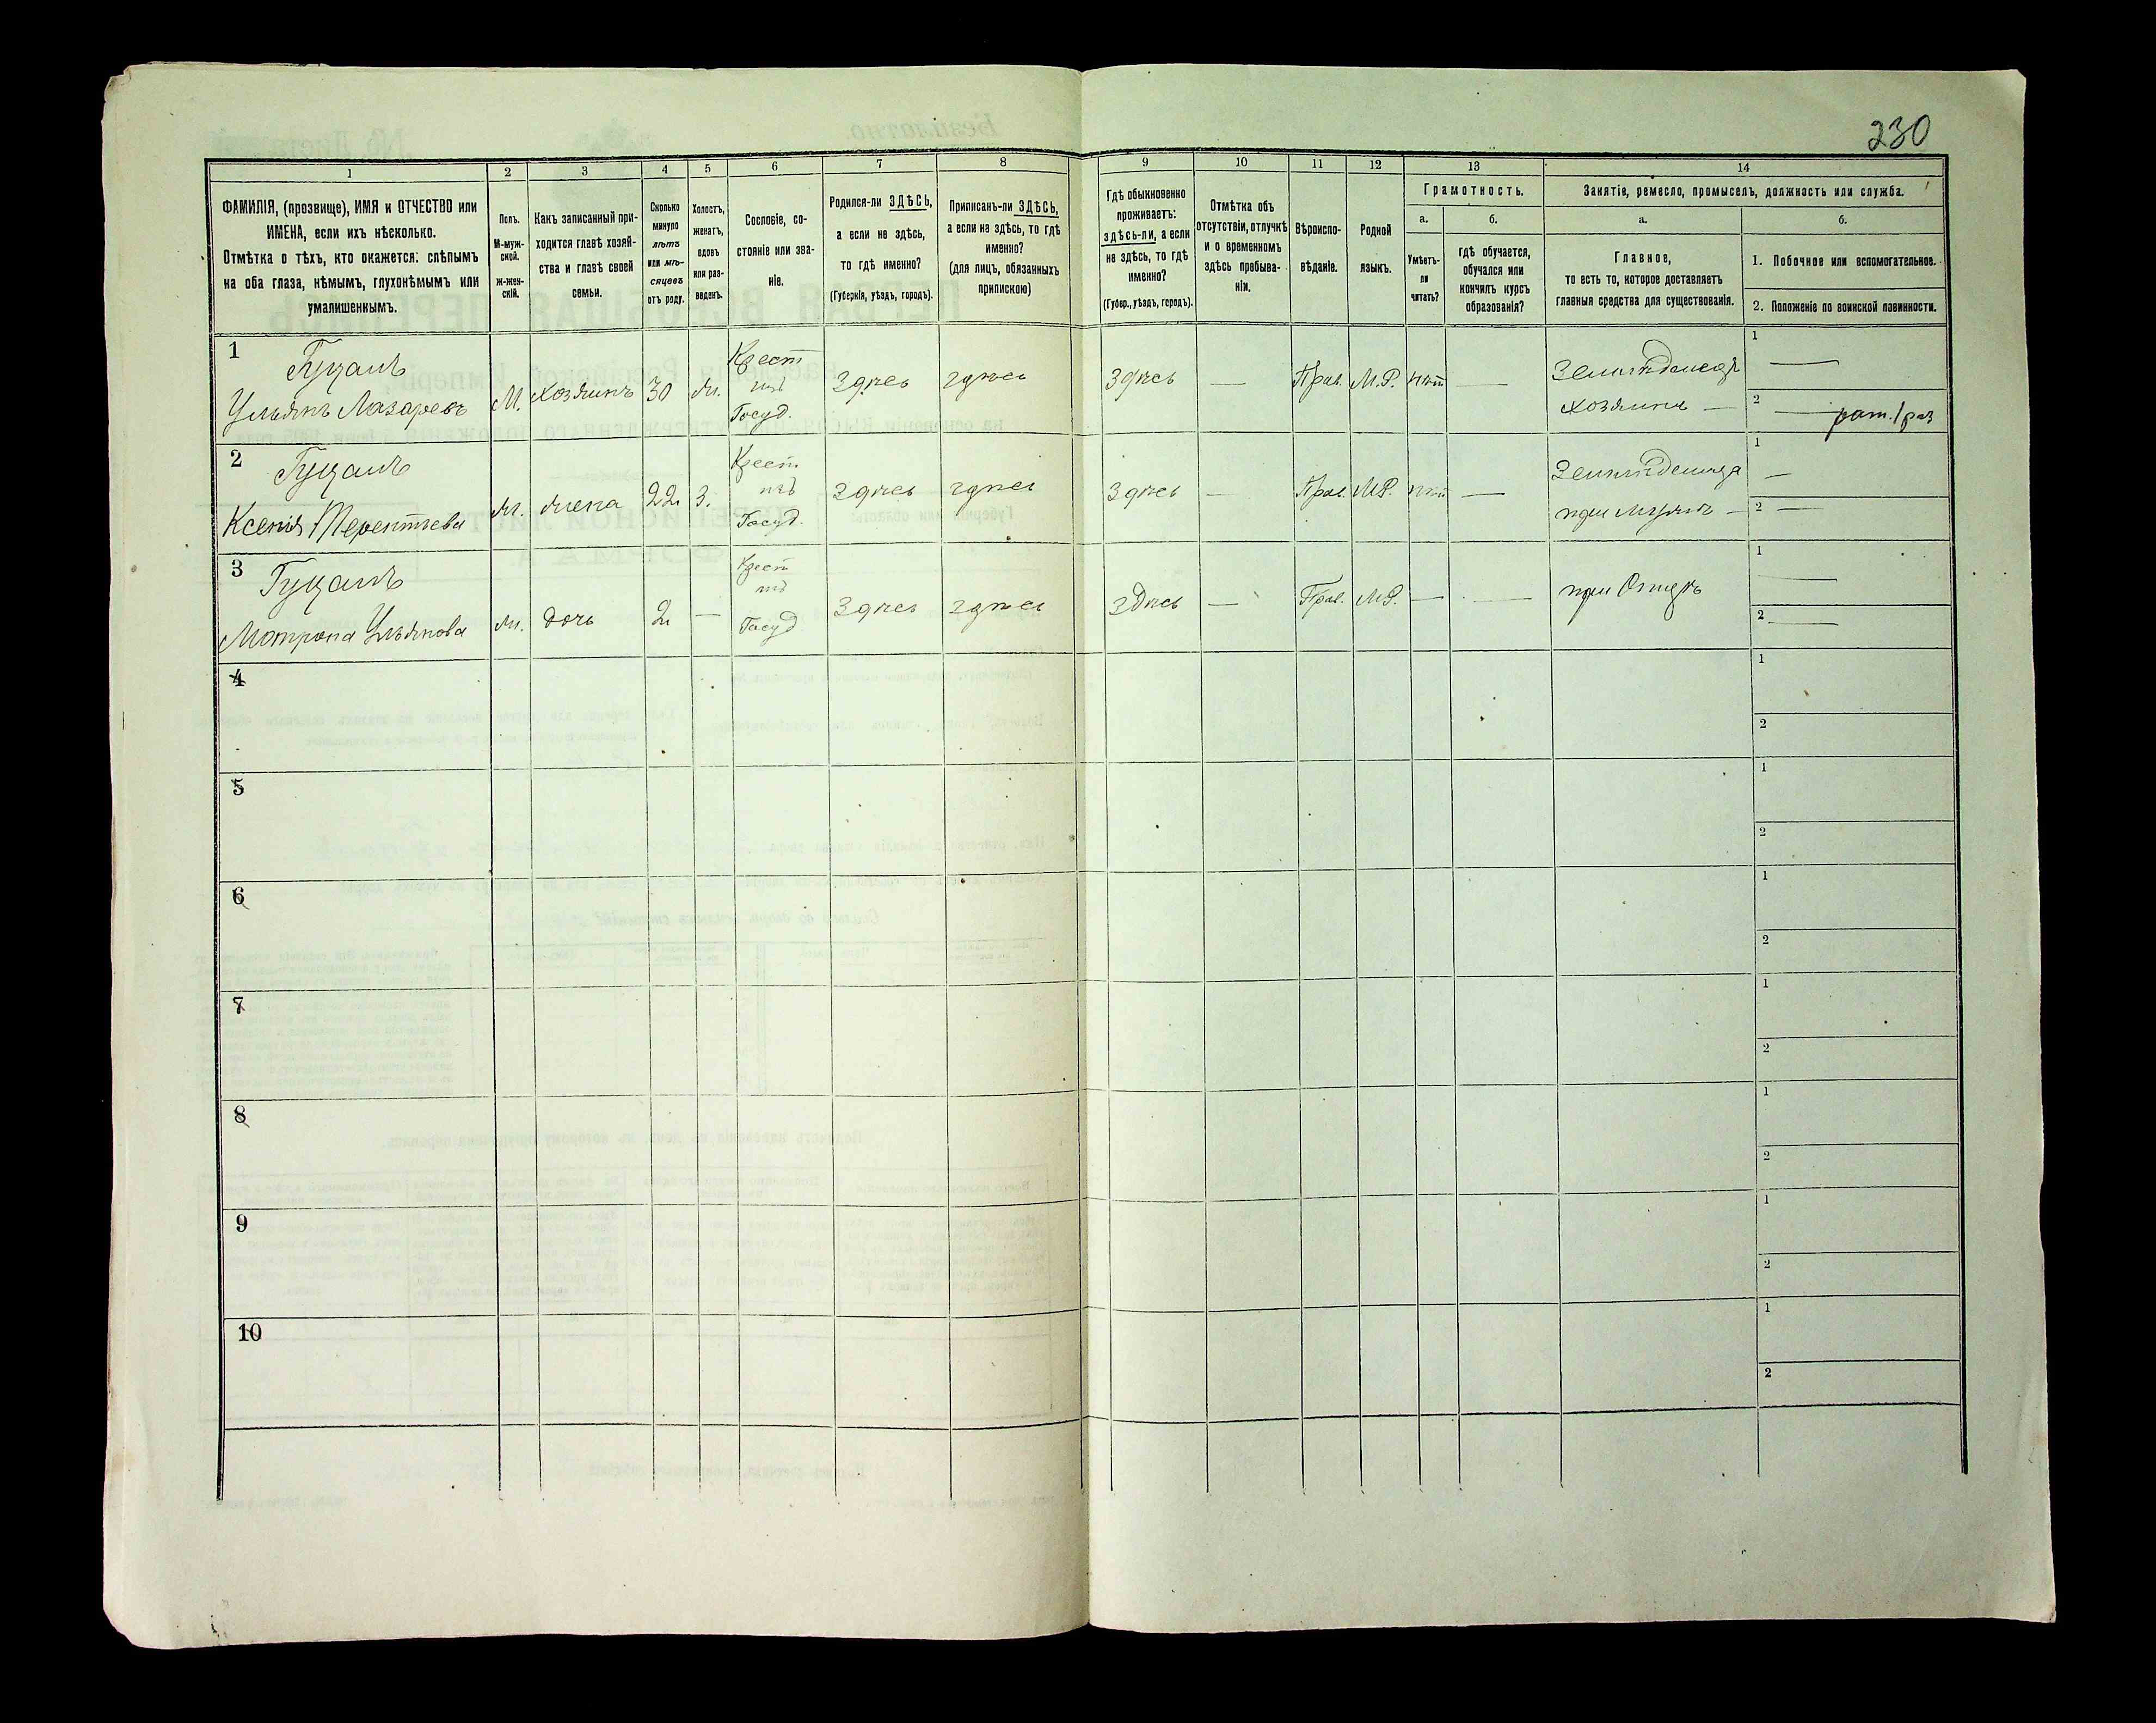 230
1 2 3 4 5 6 7 8 9 10 11 12 13 14
ФАМИЛІЯ, (прозвище), ИМЯ и ОТЧЕСТВО или
ИМЕНА, если ихъ нѣсколько.
Отмѣтка о тѣхъ, кто окажется: слѣпымъ
на оба глаза, нѣмымъ, глухонѣмымъ или
умалишеннымъ.
Полъ.
М-муж-
ской.
Ж-жен-
скій.
Какъ записанный при-
ходится главѣ хозяй-
ства и главѣ своей
семьи.
Сколько
минуло
лѣтъ
или мѣ-
сяцевъ
отъ роду.
Холостъ,
женатъ,
вдовъ
или раз-
веденъ.
Сословіе, со-
стояніе или зва-
ніе.
Родился-ли ЗДѢСЬ,
а если не здѣсь,
то гдѣ именно?
(Губернія, уѣздъ, городъ).
Приписанъ-ли ЗДѢСЬ,
а если не здѣсь, то гдѣ
именно?
(для лицъ, обязанныхъ
припискою)
Гдѣ обыкновенно
проживаетъ:
здѣсь-ли, а если
не здѣсь, то гдѣ
именно?
(Губер., уѣздъ, городъ).
Отмѣтка объ
отсутствіи, отлучкѣ
и о временномъ
здѣсь пребыва-
ніи.
Вѣроиспо-
вѣданіе.
Родной
языкъ.
Грамотность.
а.
Умѣетъ-
ли
читать?
б.
гдѣ обучается,
обучался или
кончилъ курсъ
образованія?
Занятіе, ремесло, промыселъ, должность или служба.
а.
Главное,
то есть то, которое доставляетъ
главныя средства для существованія.
б.
1. Побочное или вспомогательное.
2. Положеніе по воинской повинности.
1
Гуцалъ
Ульянъ Лазаревъ
М.
Хозяинъ
30
ж.
Крест
изъ
Госуд.
Здѣсь
здѣсь
Здѣсь
—
Прав.
М.Р.
нѣт
—
Земледелец
хозяинъ —
1 —
2 — рат. 1 раз
2
Гуцалъ
Ксенія Терентьева
ж.
жена
22
З.
Крест.
изъ
Госуд.
Здѣсь
здѣсь
Здѣсь
—
Прав.
М.Р.
нѣт
—
при мужѣ —
1 —
2 —
3
Гуцалъ
Мотрона Ульянова
ж.
дочь
2
—
Крест
изъ
Госуд
Здѣсь
здѣсь
здѣсь
—
Прав.
М.Р.
—
—
при Отцѣ
1 —
2 —
4
1
2
5
1
2
6
1
2
7
1
2
8
1
2
9
1
2
10
1
2